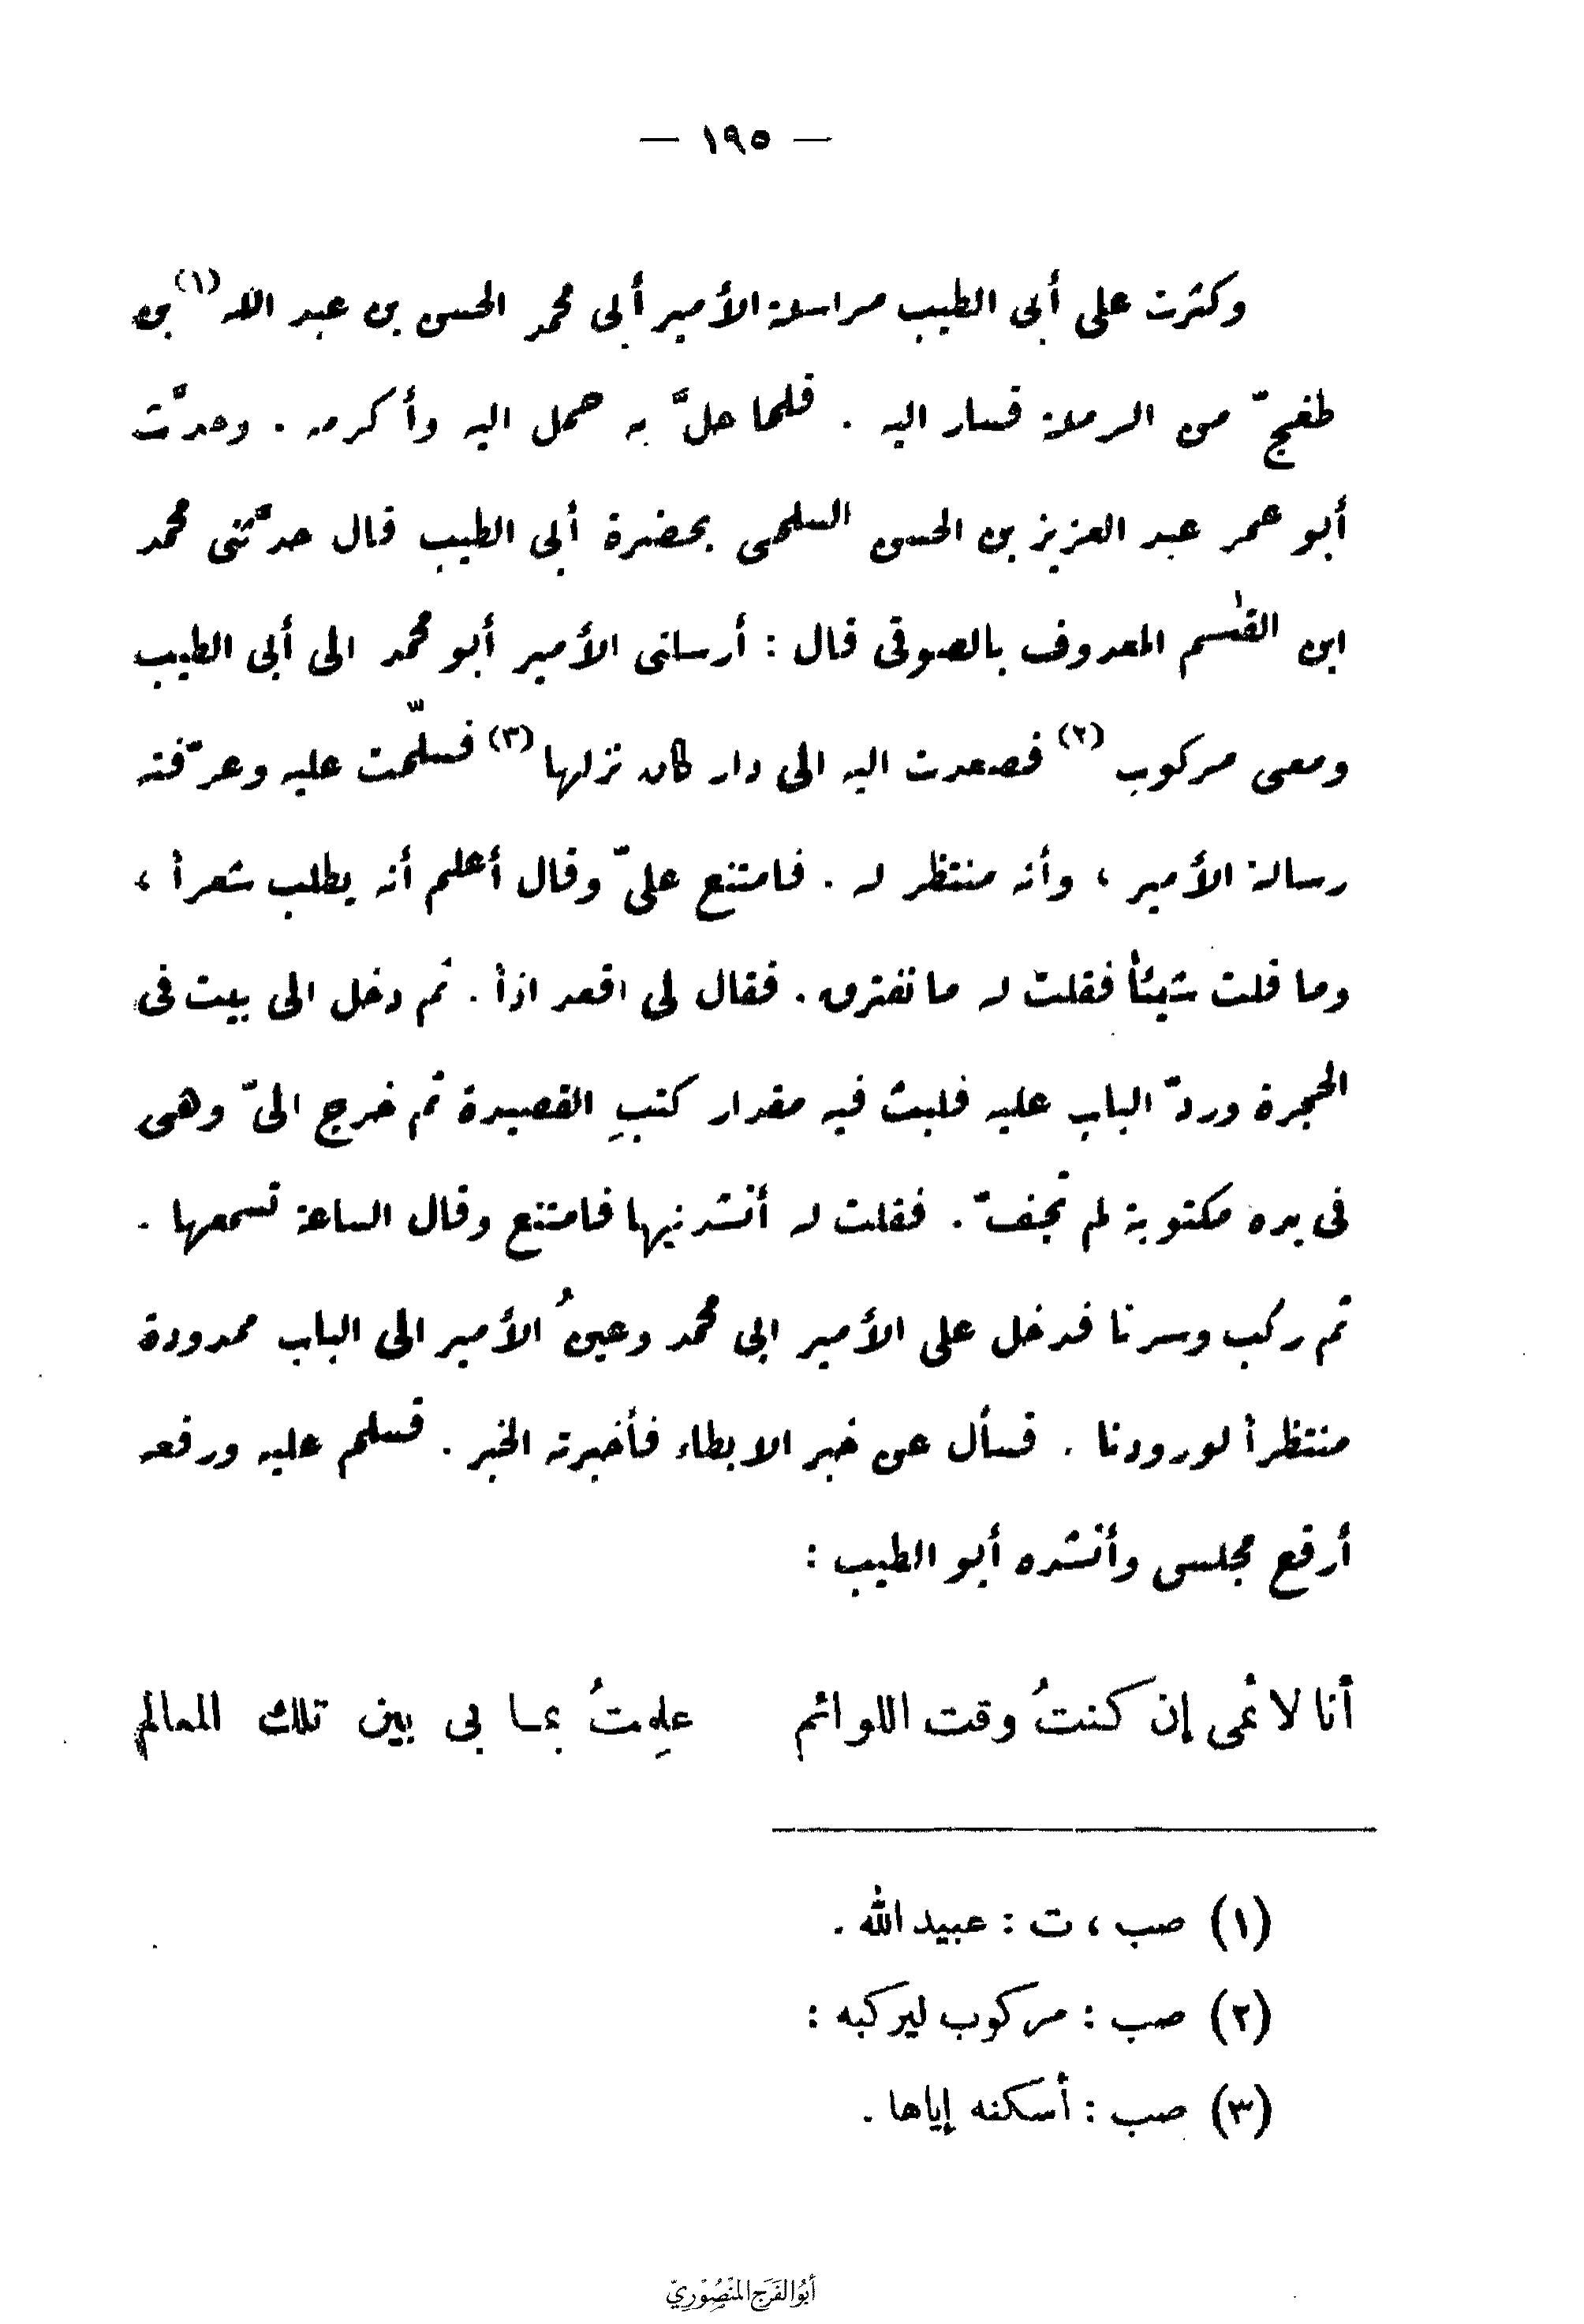 — ١٩٥ —
وكثرت على أبى الطيب مراسلة الأمير أبى محمد الحسن بن عبد الله (١) بن
طغجّ من الرملة فسار اليه . فلما حلَّ به حمل اليه وأكرمه . وحدَّث
أبو عمر عبد العزيز بن الحسن السلمى بحضرة أبى الطيب قال حدَّثنى محمد
ابن القٰسم المعروف بالصوفى قال : أرسلنى الأمير أبو محمد الى أبى الطيب
ومعى مركوب (٢) فصعدت اليه الى دار كان نزلها (٣) فسلّمت عليه وعرّفته
رسالة الأمير ، وأنه منتظر له . فامتنع علىّ وقال أعلم أنه يطلب شعراً ،
وما قلت شيئاً فقلت له ما نفترق . فقال لى اقعد اذاً . ثم دخل الى بيت فى
الحجرة وردّ الباب عليه فلبث فيه مقدار كتبِ القصيدة ثم خرج الىّ وهى
فى يده مكتوبة لم تجفّ . فقلت له أنشدنيها فامتنع وقال الساعة تسمعها .
ثم ركب وسرنا فدخل على الأمير ابى محمد وعينُ الأمير الى الباب ممدودة
منتظراً لورودنا . فسأل عن خبر الابطاء فأخبرته الخبر . فسلم عليه ورفعه
أرفع مجلس وأنشده أبو الطيب :
أنا لائمى إن كنتُ وقت اللوائم علِمتُ بما بى بين تلك المعالم
(١) صب ، ت : عبيد الله .
(٢) صب : مركوب ليركبه :
(٣) صب : أسكنه إياها .
أبُو الفَرَج المَنْصُوْرِيّ